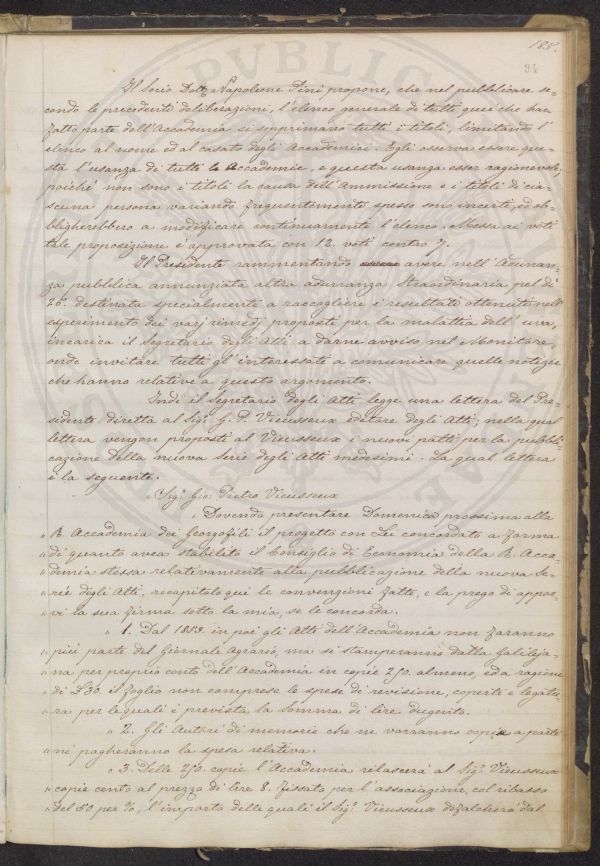 185.
94
Il Socio Dott. Napoleone Pini propone, che nel pubblicare se=
condo le precedenti deliberazioni, l'elenco generale di tutti quei che han
fatto parte dell'Accademia si sopprimano tutti i titoli, limitando l'
elenco al nome ed al casato degli Accademici. Egli osserva essere que=
sta l'usanza di tutte le Accademie, e questa usanza esser ragionevole,
poichè non sono i titoli la causa dell'ammissione e i titoli di cia=
scuna persona variando frequentemente spesso sono incerti, ed ob=
bligherebbero a modificare continuamente l'elenco. Messa ai voti
tale proposizione è approvata con 12. voti contro 7.
Il Presidente rammentando avere nell'Adunan=
za pubblica annunziata altra adunanza straordinaria pel dì
26. destinata specialmente a raccogliere i resultati ottenuti nell'
esperimento dei varj rimedj proposti per la malattia dell'uva,
incarica il Segretario degli Atti a darne avviso nel Monitore,
onde invitare tutti gl'interessati a comunicare quelle notizie
che hanno relative a questo argomento.
Indi il Segretario degli Atti legge una lettera del Pre=
sidente diretta al Sig. G. P. Vieusseux editore degli Atti, nella qual
lettera vengon proposti al Vieusseux i nuovi patti per la pubbli=
cazione della nuova Serie degli Atti medesimi. La qual lettera
è la seguente.
" Sig. Gio. Pietro Vieusseux
Dovendo presentare Domenica prossima alla
" R. Accademia dei Georgofili il progetto con Lei concordato a forma
" di quanto avea stabilito il Consiglio di Economia della R. Acca=
" demia stessa relativamente alla pubblicazione della nuova Se=
" rie degli Atti, recapitolo qui le convenzioni fatte, e la prego di appor=
" vi la sua firma sotto la mia, se le concorda.
" 1. Dal 1853. in poi gli Atti dell'Accademia non faranno
" più parte del Giornale Agrario, ma si stamperanno dalla Galileja=
" na per proprio conto dell'Accademia in copie 250. almeno, ed a ragione
" di £30. il foglio non comprese le spese di revisione, coperte e legatu=
" ra per le quali è prevista la somma di lire dugento.
" 2. Gli Autori di memorie che ne vorranno copie a parte
" ne pagheranno la spesa relativa.
" 3. Delle 250. copie l'Accademia rilascerà al Sig. Vieusseux
" copie cento al prezzo di lire 8. fissato per l'associazione, col ribasso
" del 50 per %, l'importo delle quali il Sig. Vieusseux defalcherà dal